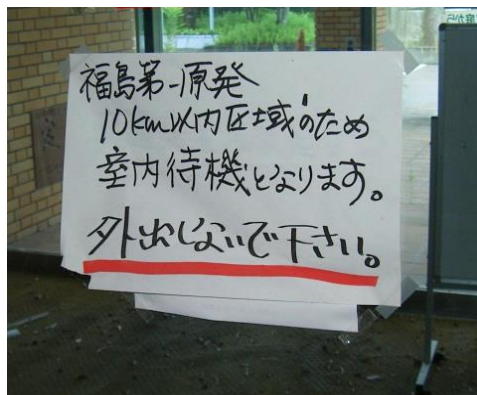 福島第一原発
10km以内区域のため
室内待機となります。
外出しないで下さい。